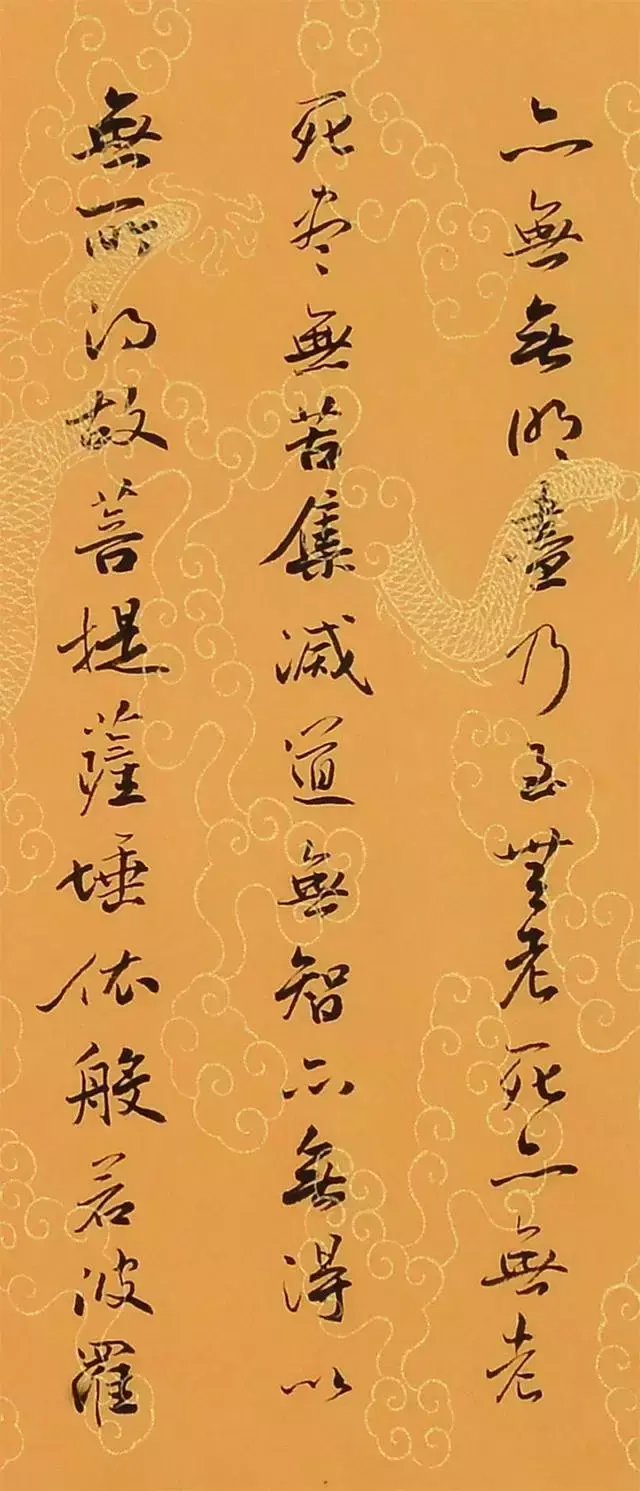 亦無無明盡乃至無老死亦無老
死尽無苦集滅道無智亦無得以
無所得故菩提薩埵依般若波羅